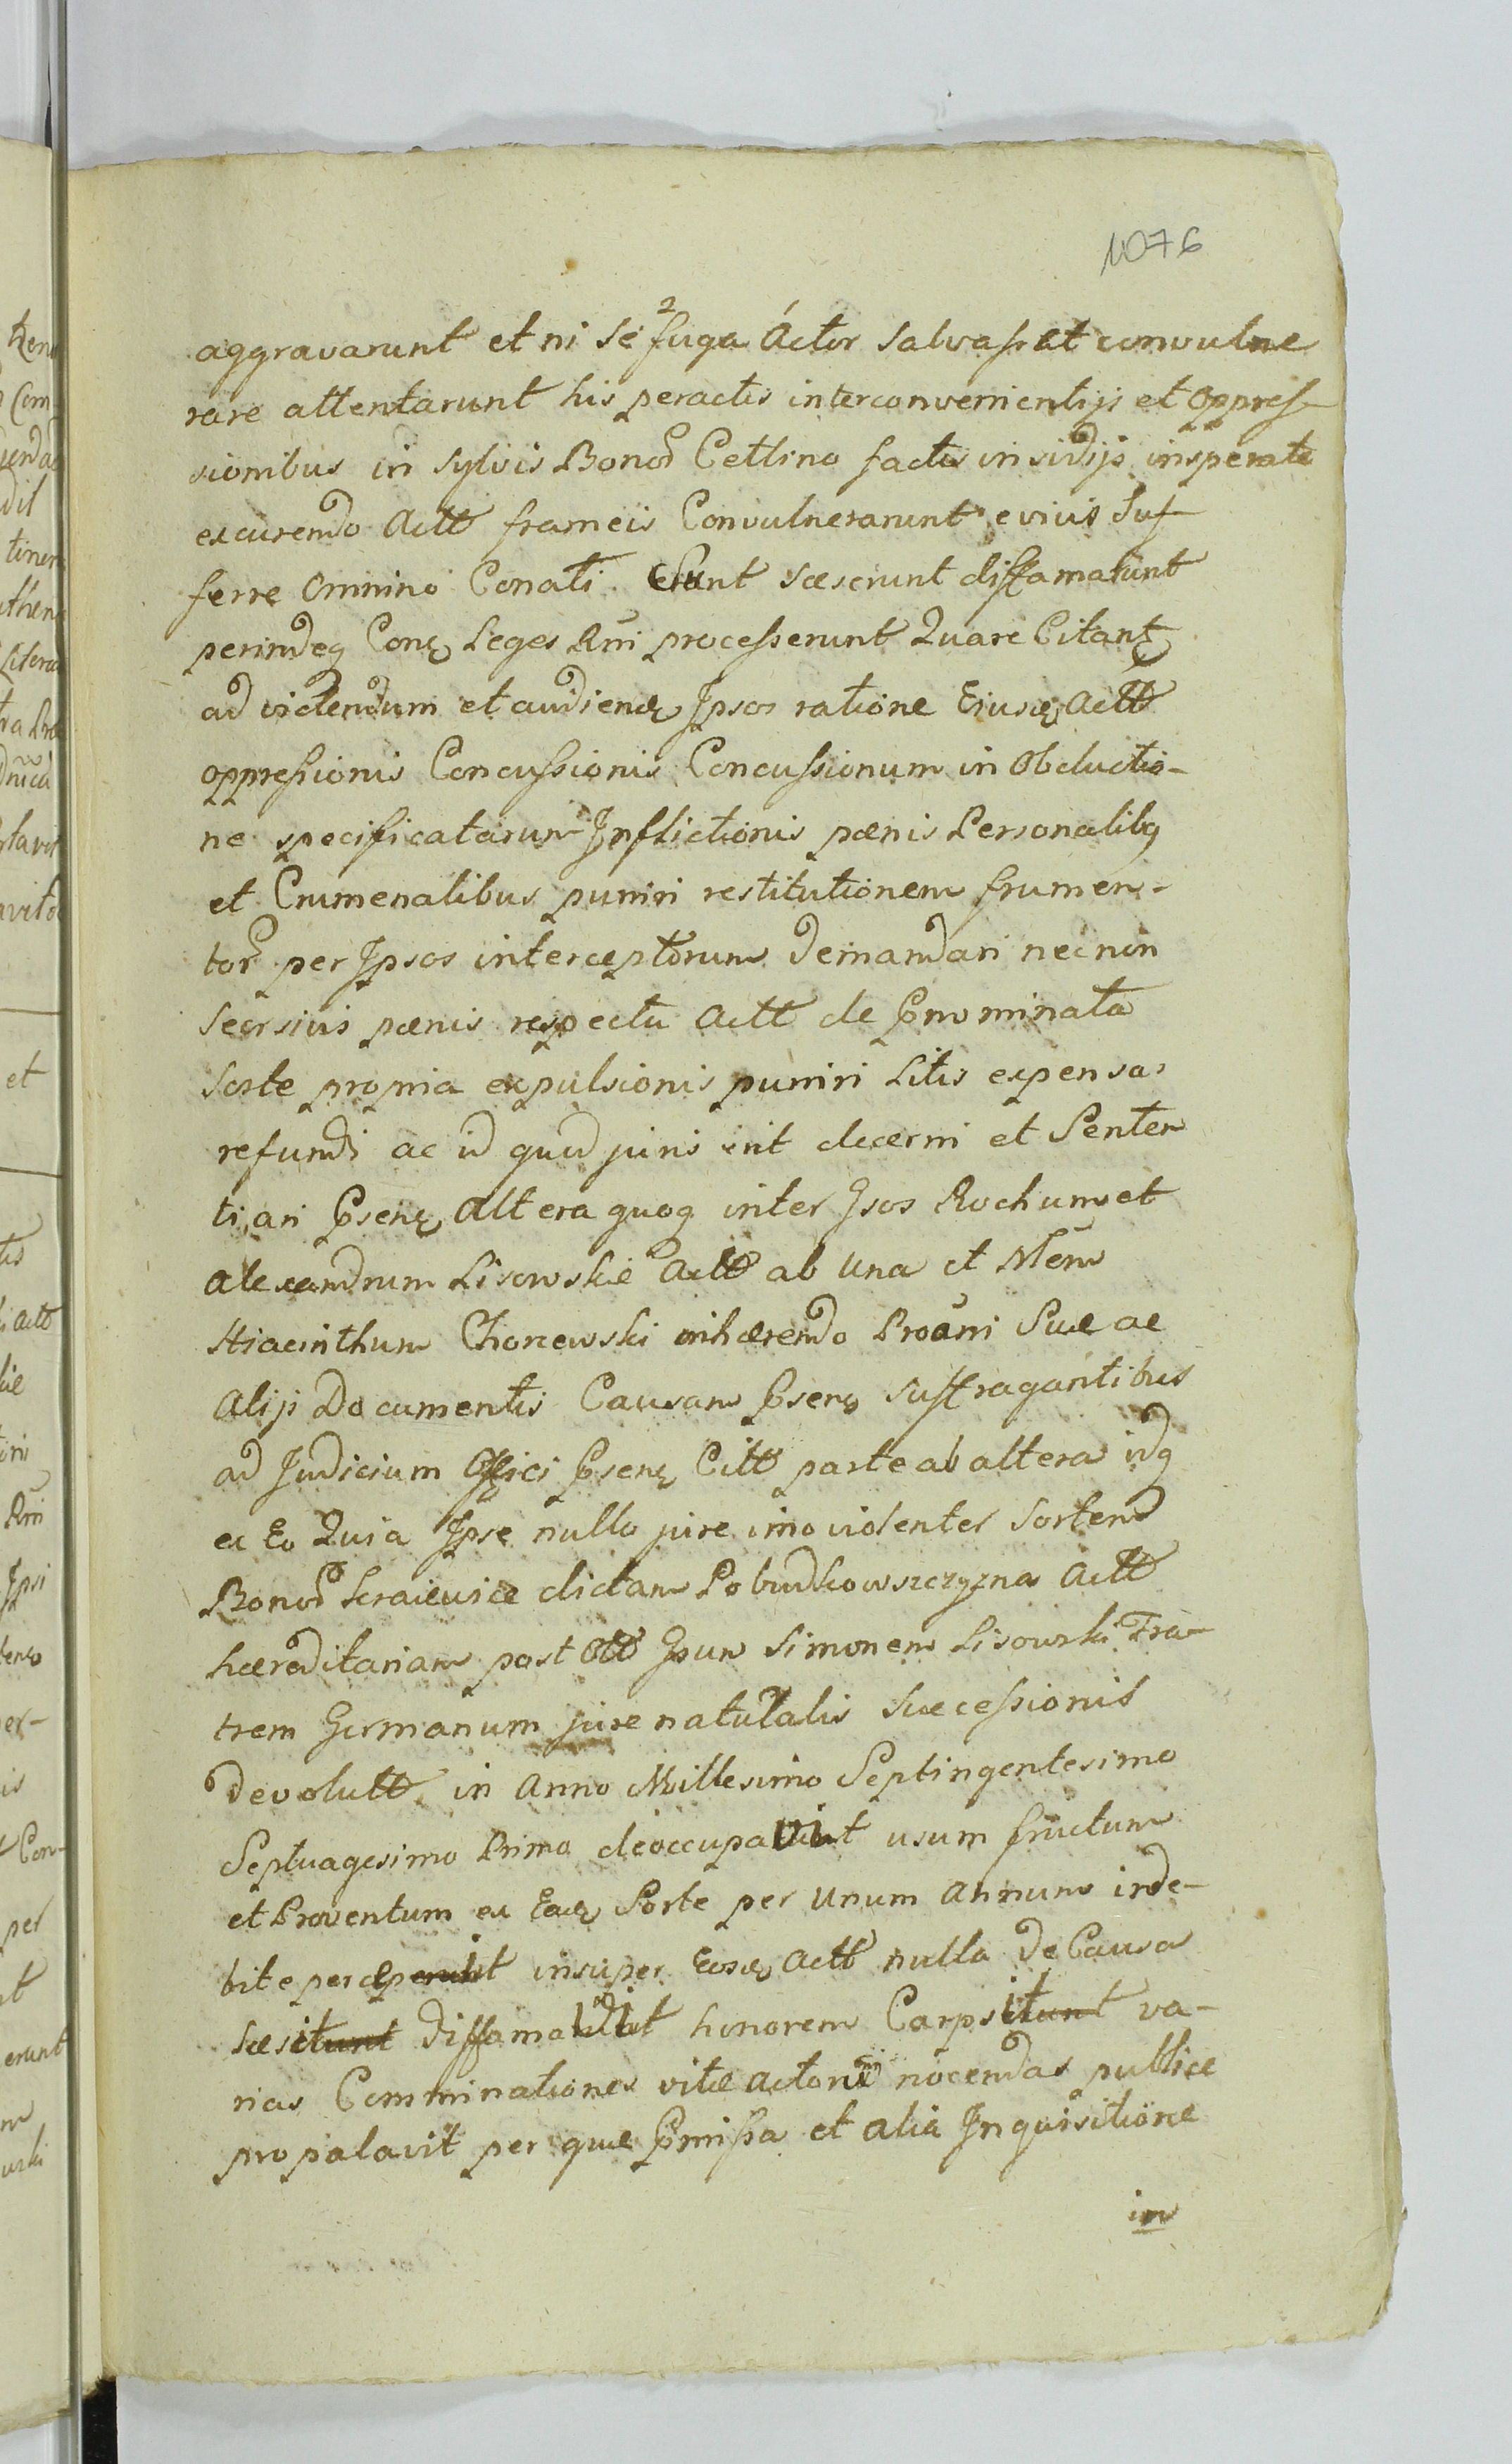 1076
aggravarunt et ni se fuga Actor salvasset convulne
rare attentarunt his peractis interconvenientijs et oppres-
sionibus in sylvis Bonor Cetlino factis insidijs insperate
excurendo Actt frameis Convulnerarunt e vivis Suf
ferre omnino Conati sunt læserunt diffamarunt
perindeq Conq Leges Rni processerunt Quare Citant
ad videndum et audienq Ipsos ratione Eiusq Actt
oppressionis Concussionis Concussionum in Obductio-
ne specificatarum Inflictionis pænis Personalibq
et Crumenalibus puniri restitutionem frumen-
tor per Ipsos interceptorum demandari necnon
seorsivis pænis respectu Actt de Pnominata
sorte propria expulsionis puniri Litis expensas
refundi ac id quid juris erit decerni et Senten
tiari Psenq Altera quoq inter Gsos Rochum et
Alexandrum Lisowskie Actt ab una et Mem
Hiacinthum Chorzewski inhærendo Proāni Suæ ac
Alijs Documentis Causam Psenq suffragantibus
ad Judicium Offici Psenq Citt parte ab altera idq
ex Eo Quia Ipse nullo jure imo violenter Sortem
Bonor Kraievice dictam Pobudkowszczyzna Actt
hæreditariam post Ott Gsum Simonem Lisowski Fra-
trem Germanum jure naturalis successionis
devolutt in Anno Millesimo Septingentesimo
Septuagesimo Primo deoccupavit usum fructum
et Proventum ex Eadq Sorte per Unum Annum inde-
bite percepit insuper Eosdq Actt nulla de Causa
læsit diffamavit honorem Carpsit va-
rias Comminationes vitæ Actorum nocendas publice
propalavit per quæ Pmissa et alia Inquisitione
in